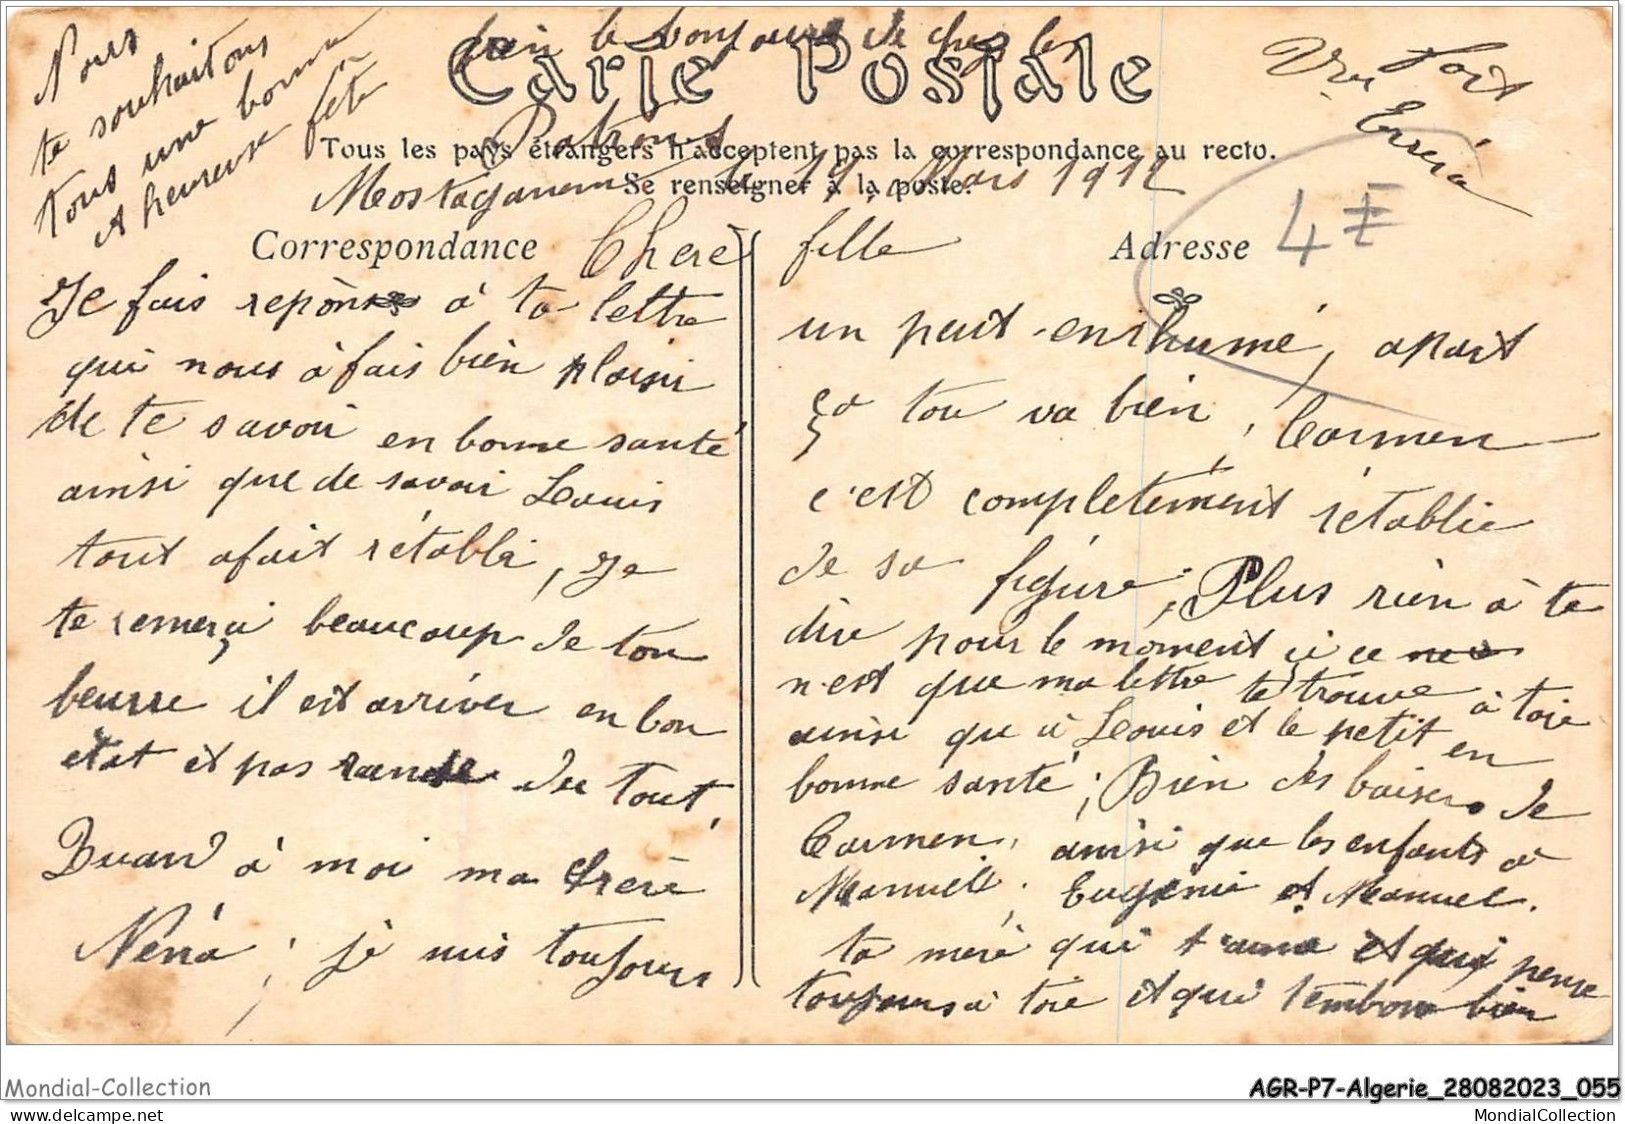 Nous
te souhaitons
tous une bonne
et heureuse fete
bien le bonjours de chez les
Patrons
Vve
Fort
Carte Postale
Tous les pays étrangers n'acceptent pas la correspondance au recto.
Se renseigner à la poste.
Mostaganem le 19 Mars 1912
Correspondance
Adresse
4F
Cherè fille
Je fais repònse à ta lettre
qui nous à fais bièn plaisir
de te savoir en bonne santé
ainsi que de savoir Louis
tout afait rétabli, Je
te remerçi beaucoup de ton
beurre il est arrivér en bon
état et pas rance du tout,
Quand à moi ma cherè
Néna; jè suis toujours
un peut enrhumé, apart
ça tou va bièn, Carmen
c'est completèment rétablie
de sa figure; Plus rièn à te
dire pour le moment si ce
n'est que ma lettre te trouve à toie
ainsi que à Louis et le petit en
bonne santé; Bièn des baisers de
Carmen, ainsi que les enfants à
Manuell, Eugènie et Manuel.
ta merè qui t'aime et qui pense
toujours à toie et qui t'embrasse bien